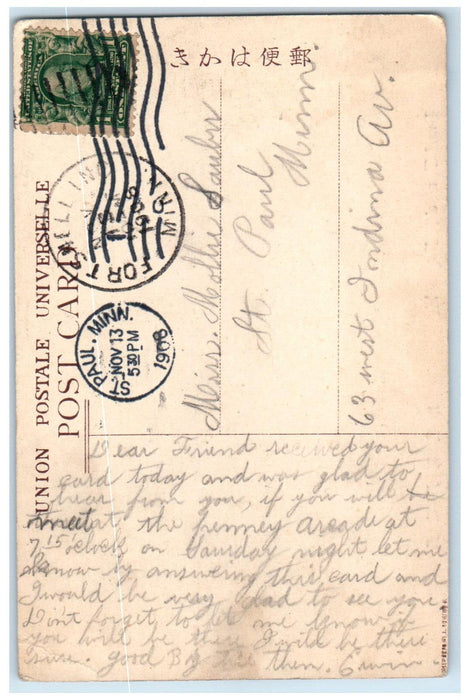 きかは便郵
UNION POSTALE UNIVERSELLE
POST CARD
FORT SNELLING MINN.
ST. PAUL, MINN.
NOV 13
5 30 PM
1908
Miss. Mollie
St. Paul
Minn.
63 west Indina Av.
Dear Friend received your
card today and was glad to
hear from you, if you will be
meet at the penney arcade at
7 15 o'clock on Saurday night let me
know by answering this card and
I would be very glad to see you
Don't forget to let me know if
you will be there I will be there
sure. good By till then. Erwin